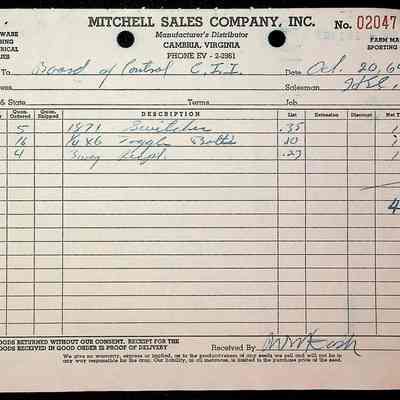 MITCHELL SALES COMPANY, INC.
No. 02047
WARE
Manufacturer's Distributor
CAMBRIA, VIRGINIA
PHONE EV - 2-2981
FARM MA
SPORTING
To Board of Control C. I. I. Date Oct. 20, 6
Salesman
& State Terms Job
Quan. Ordered Quan. Shipped DESCRIPTION List Extension Discount Net
5 1871 Switches .35
16 1/4 x 6 Toggle Bolts .10
4 .23
4
OODS RETURNED WITHOUT OUR CONSENT. RECEIPT FOR THE
OODS RECEIVED IN GOOD ORDER IS PROOF OF DELIVERY
Received By
We give no warranty, express or implied, as to the productiveness of any seeds we sell and will not be in
any way responsible for the crop. Our liability, in all matters, is limited to the purchase price of the seed.